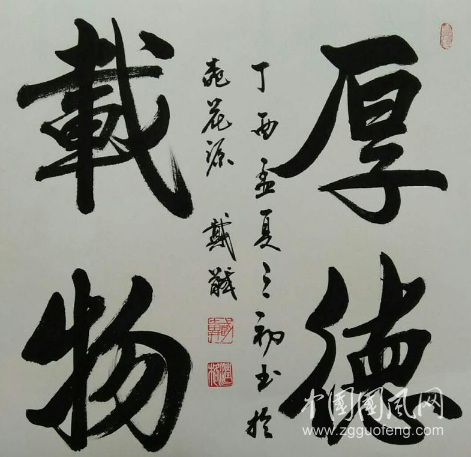 厚德
載物
丁酉孟夏之初書於
桃花源 戴
中国国风网
www.zgguofeng.com